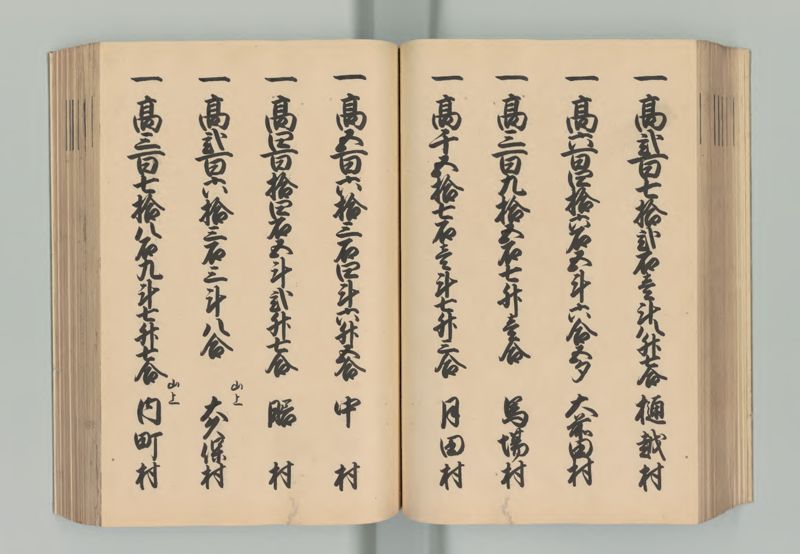 一 高弐百七拾弐石壱斗八升七合 樋越村
一 高六百四拾六石五斗六合五夕 大前田村
一 高三百九拾五石七升壱合 馬場村
一 高千五拾七石壱斗七升三合 月田村
一 高五百六拾三石四斗六升五合 中村
一 高四百拾四石五斗弐升七合 膳村
一 高弐百六拾三石三斗八合 山上 大久保村
一 高三百七拾八石九斗七升七合 山上 内町村